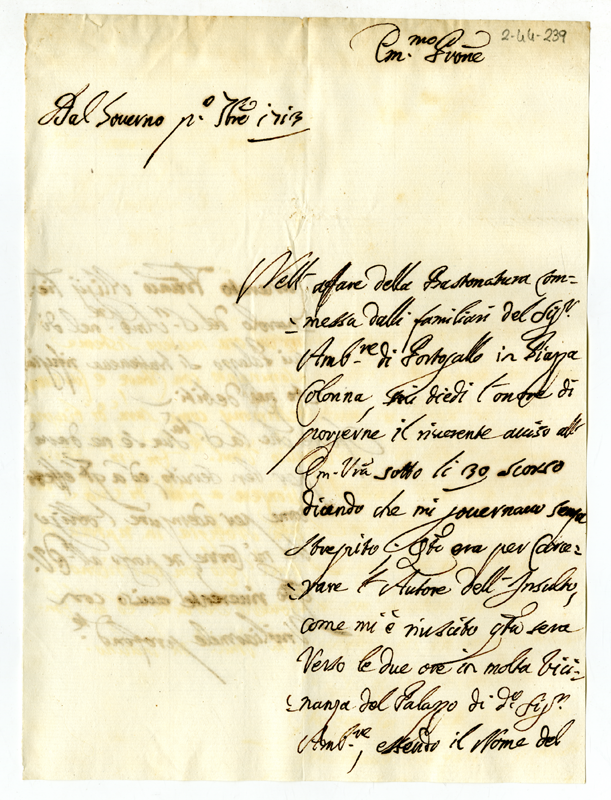 2-44-239
Em.mo Prone
Dal Governo p.o 7bre 1713
Nell' affare della Bastonatura com-
messa dalli familiari del Sig.r
Amb.re di Portogallo in Piazza
Colonna, mi diedi l' onore di
porgerne il riverente avviso all'
Em. Vra sotto li 30 scorso
dicendo che mi governavo senza
strepito q.do era per Carce-
rare l' Autore dell' Insulto,
come mi è riuscito q.ta sera
verso le due ore in molta vici-
nanza del Palazzo di d.o Sig.r
Amb.re, essendo il Nome del